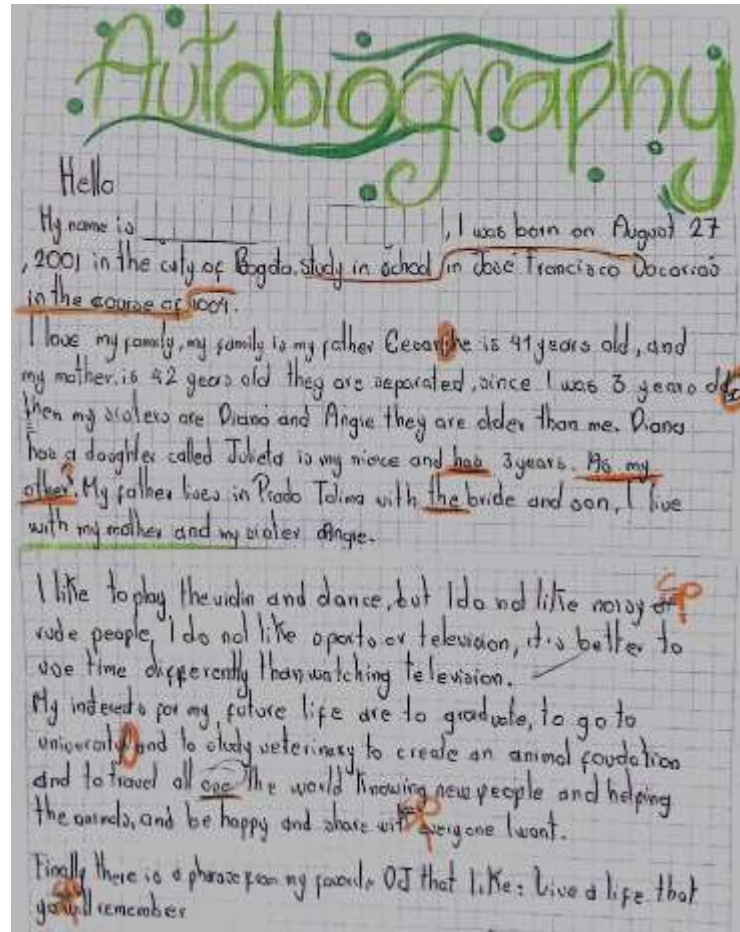 Autobiography
Hello
My name is , I was born on August 27
, 2001 in the city of Bogota, study in school in Jose Francisco Socarras
in the course of 1004.
I love my family, my family is my father Cesar, he is 41 years old, and
my mother, is 42 years old they are separated, since I was 3 years old
then my sisters are Diana and Angie they are older than me. Diana
has a daughter called Julieta is my niece and has 3 years. As my
other? My father lives in Prado Tolima with the bride and son, I live
with my mother and my sister Angie.
I like to play the violin and dance, but I do not like noisy or sp
rude people, I do not like sports or television, it is better to
use time differently than watching television.
My interests for my future life are to graduate, to go to
university and to study veterinary to create an animal foudation
and to travel all the world knowing new people and helping
the animals, and be happy and share with everyone I want.
Finally there is a phrase from my favorite DJ that like: Live a life that
you will remember